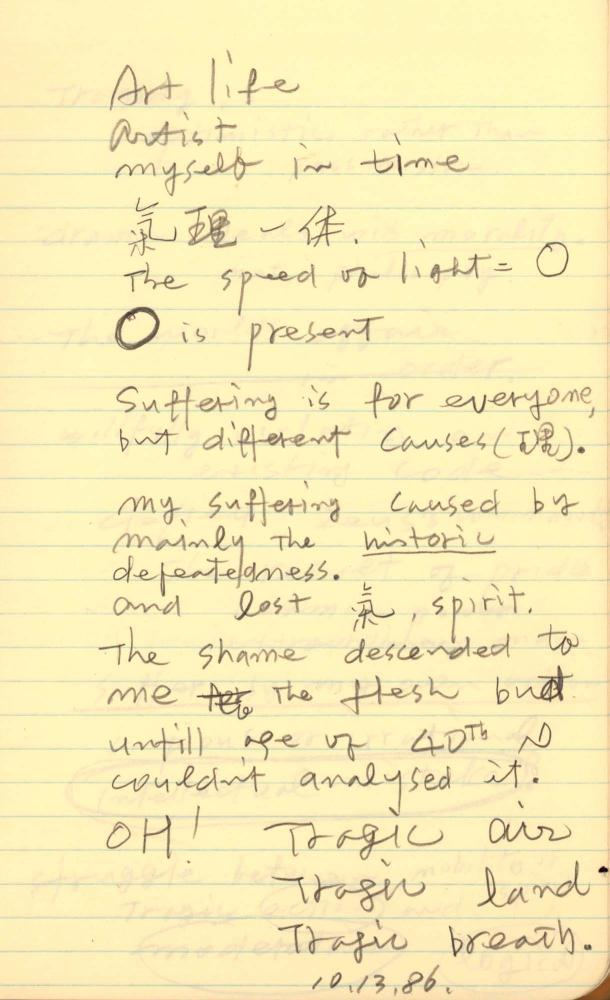 Art life
Artist
myself in time
氣理一体.
The speed of light = O
O is present
Suffering is for everyone,
but different causes (理).
my suffering caused by
mainly the historic
defeatedness.
and lost 氣, spirit.
The shame descended to
me the flesh but
untill age of 40th
couldn't analysed it.
OH! Tragic air
Tragic land
Tragic breath.
10.13.86.